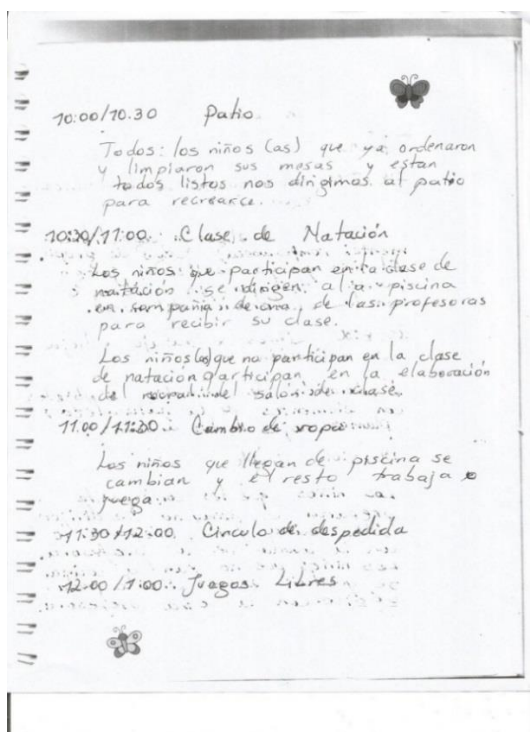 10:00/10.30 Patio.
Todos: los niños (as) que ya ordenaron
y limpiaron sus mesas y estan
todos listos nos dirigimos al patio
para recrearce.
10:30/11:00. Clase de Natación
Los niños que participan en la clase de
natación se dirigen a la piscina
en compañia de una de las profesoras
para recibir su clase.
Los niños(as) que no participan en la clase
de natación participan en la elaboración
del mural del salón de clase.
11.00/11:20. Cambio de ropa
Los niños que llegan de piscina se
cambian y el resto trabaja o
juega.
11:30/12:00. Circulo de despedida
12:00/1:00. Juegos Libres